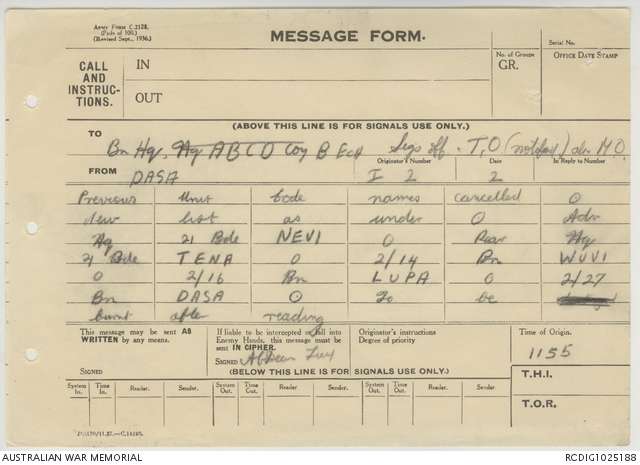 Army Form C.2128.
(Pads of 100.)
(Revised Sept., 1936.)
MESSAGE FORM.
Serial No.
CALL
AND
INSTRUC-
TIONS.
IN
OUT
No. of Groups
GR.
OFFICE DATE STAMP
(ABOVE THIS LINE IS FOR SIGNALS USE ONLY.)
TO
Bn Hq, Hq A B C D Coy B Ech Sigs off. T.O M.O.
FROM
DASA
Originator's Number
I 2
Date
2
In Reply to Number
Previous Unit Code names cancelled O
New list as under O Adv
Hq 21 Bde NEVI O Rear Hq
21 Bde TENA O 2/14 Bn WUVI
O 2/16 Bn LUPA O 2/27
Bn DASA O To be
burnt after reading
This message may be sent AS
WRITTEN by any means.
SIGNED
If liable to be intercepted or fall into
Enemy Hands, this message must be
sent IN CIPHER.
SIGNED
Originator's instructions
Degree of priority
Time of Origin.
1155
(BELOW THIS LINE IS FOR SIGNALS USE ONLY.)
T.H.I.
T.O.R.
System In. Time In. Reader. Sender. System Out. Time Out. Reader Sender. System Out. Time Out. Reader. Sender.
AUSTRALIAN WAR MEMORIAL
RCDIG1025188